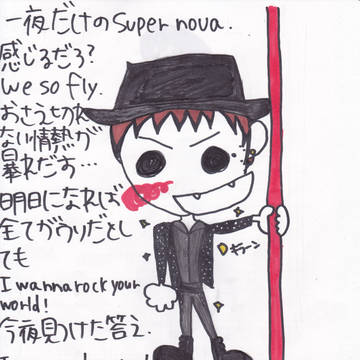 一夜だけのSuper nova.
感じるだろ?
we so fly.
おさえきれ
ない情熱が
暴れだす…
明日になれば
全てがウソだとし
ても
I wanna rock your
world!
今夜見つけた答え.
キラーン